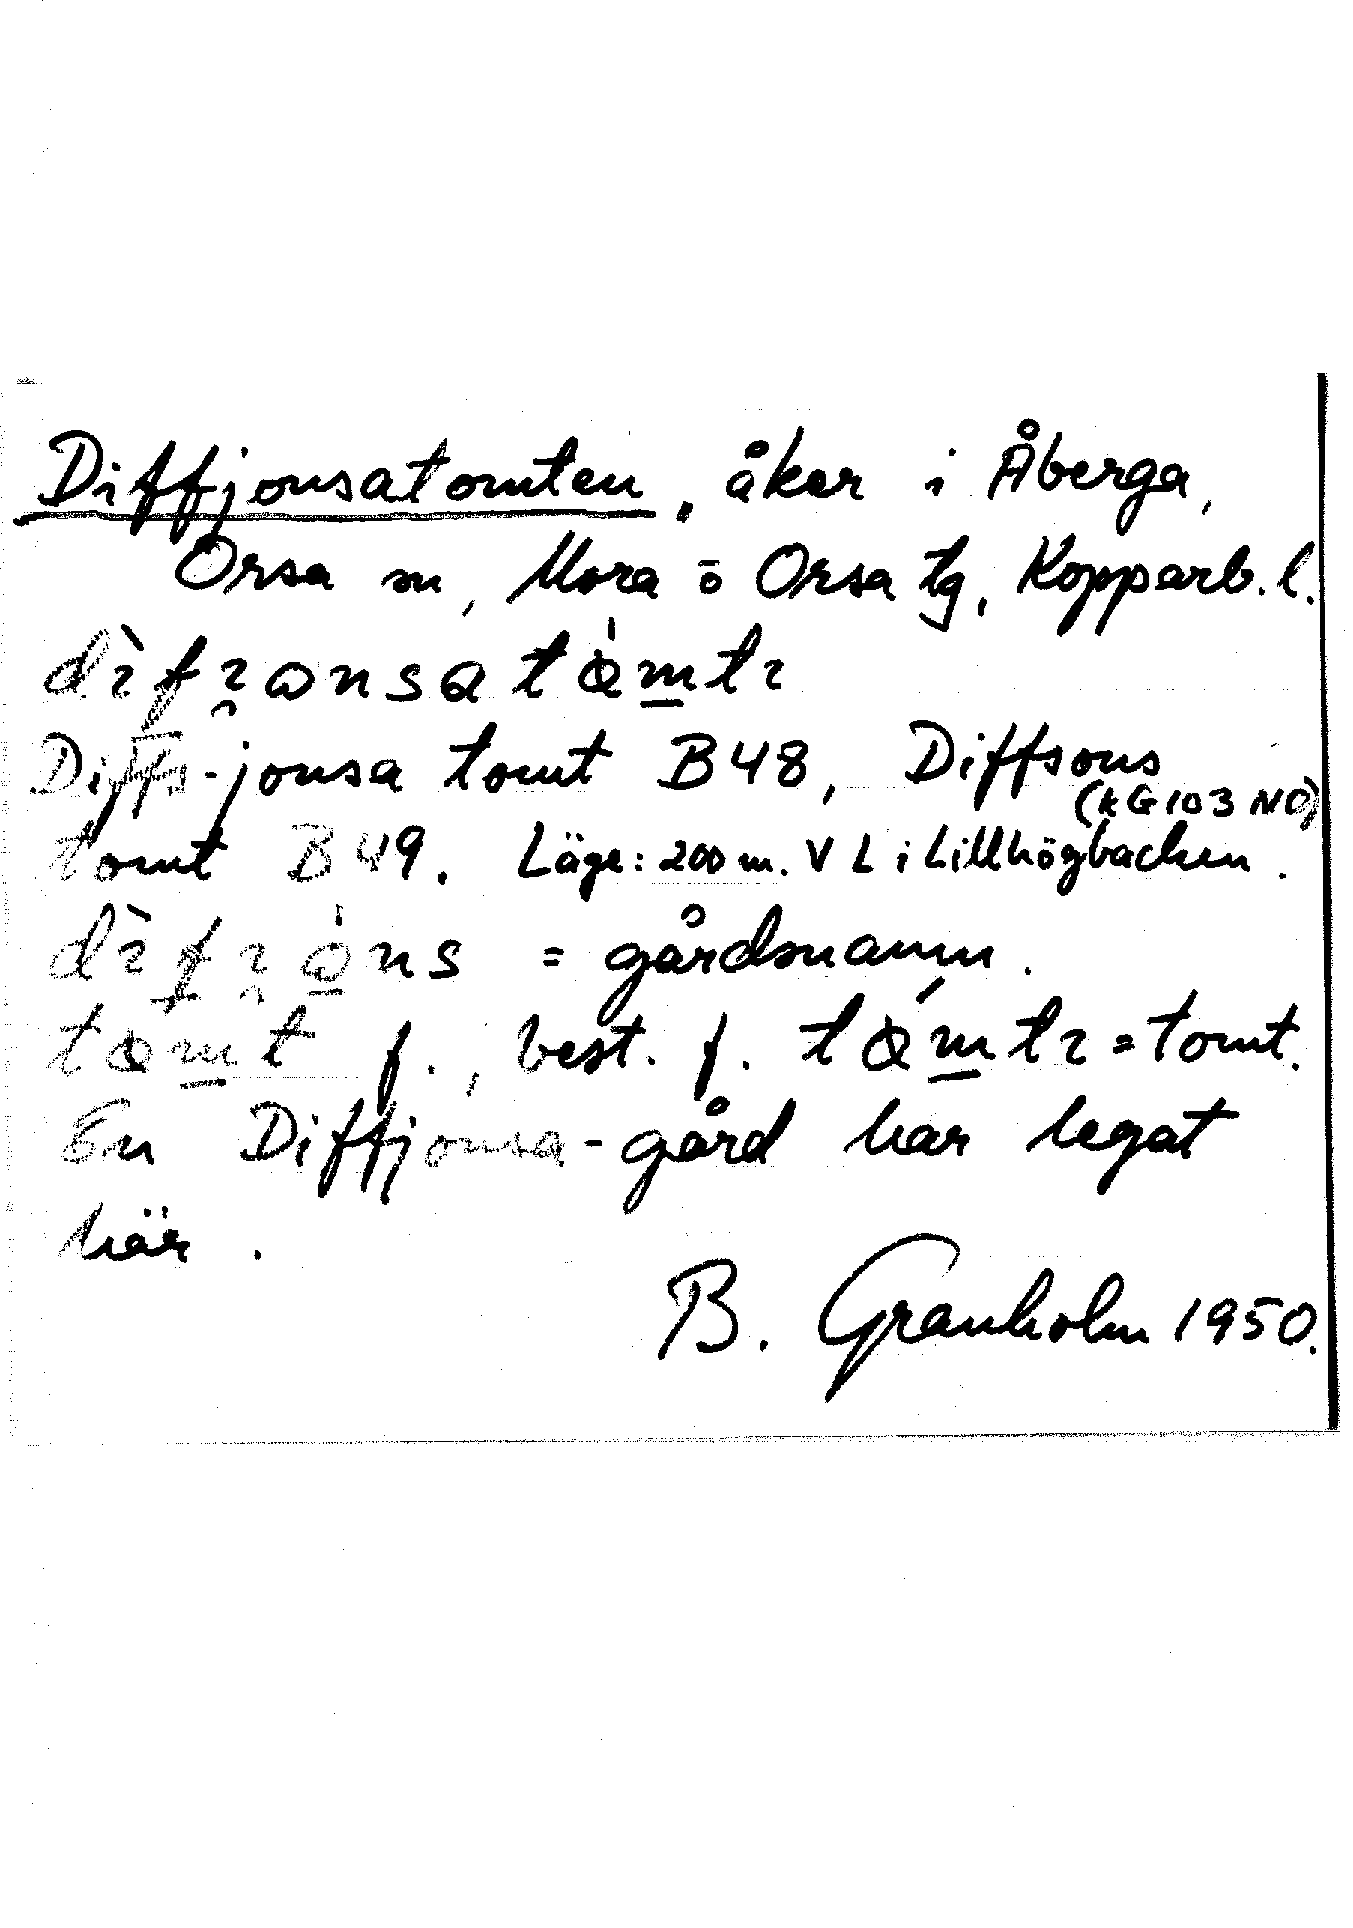 Diffjonsatomten, åker i Åberga,
Orsa sn, Mora o Orsa tg, Kopparb. l.
dìfı̯ɷnsatọ̀mtı
Diffs-jonsa tomt B48, Diffsons
(KG103 NO)
tomt B49. Läge: 200 m. V L i Lillhögbacken.
dìfı̯ɷns = gårdsnamn.
tọ̀mt f., best. f. tọ̀mtı = tomt.
En Diffjonsa-gård har legat
här.
B. Granholm 1950.